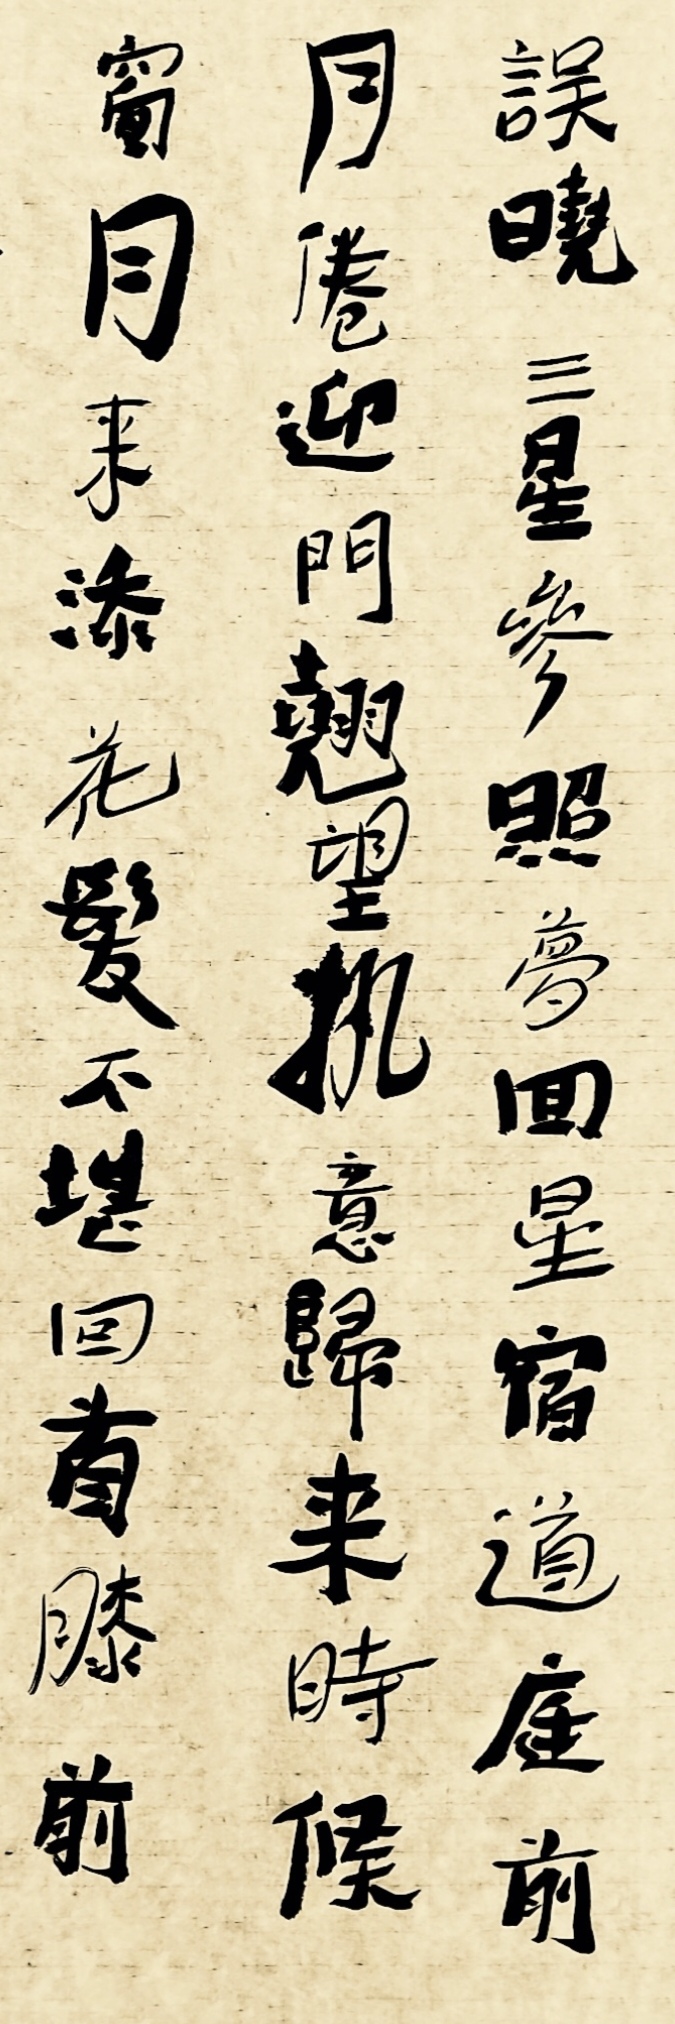 誤曉三星參照夢回星宿道庭前
月倦迎門翹望執意歸来時候
窗月来添花髮不堪回首膝前